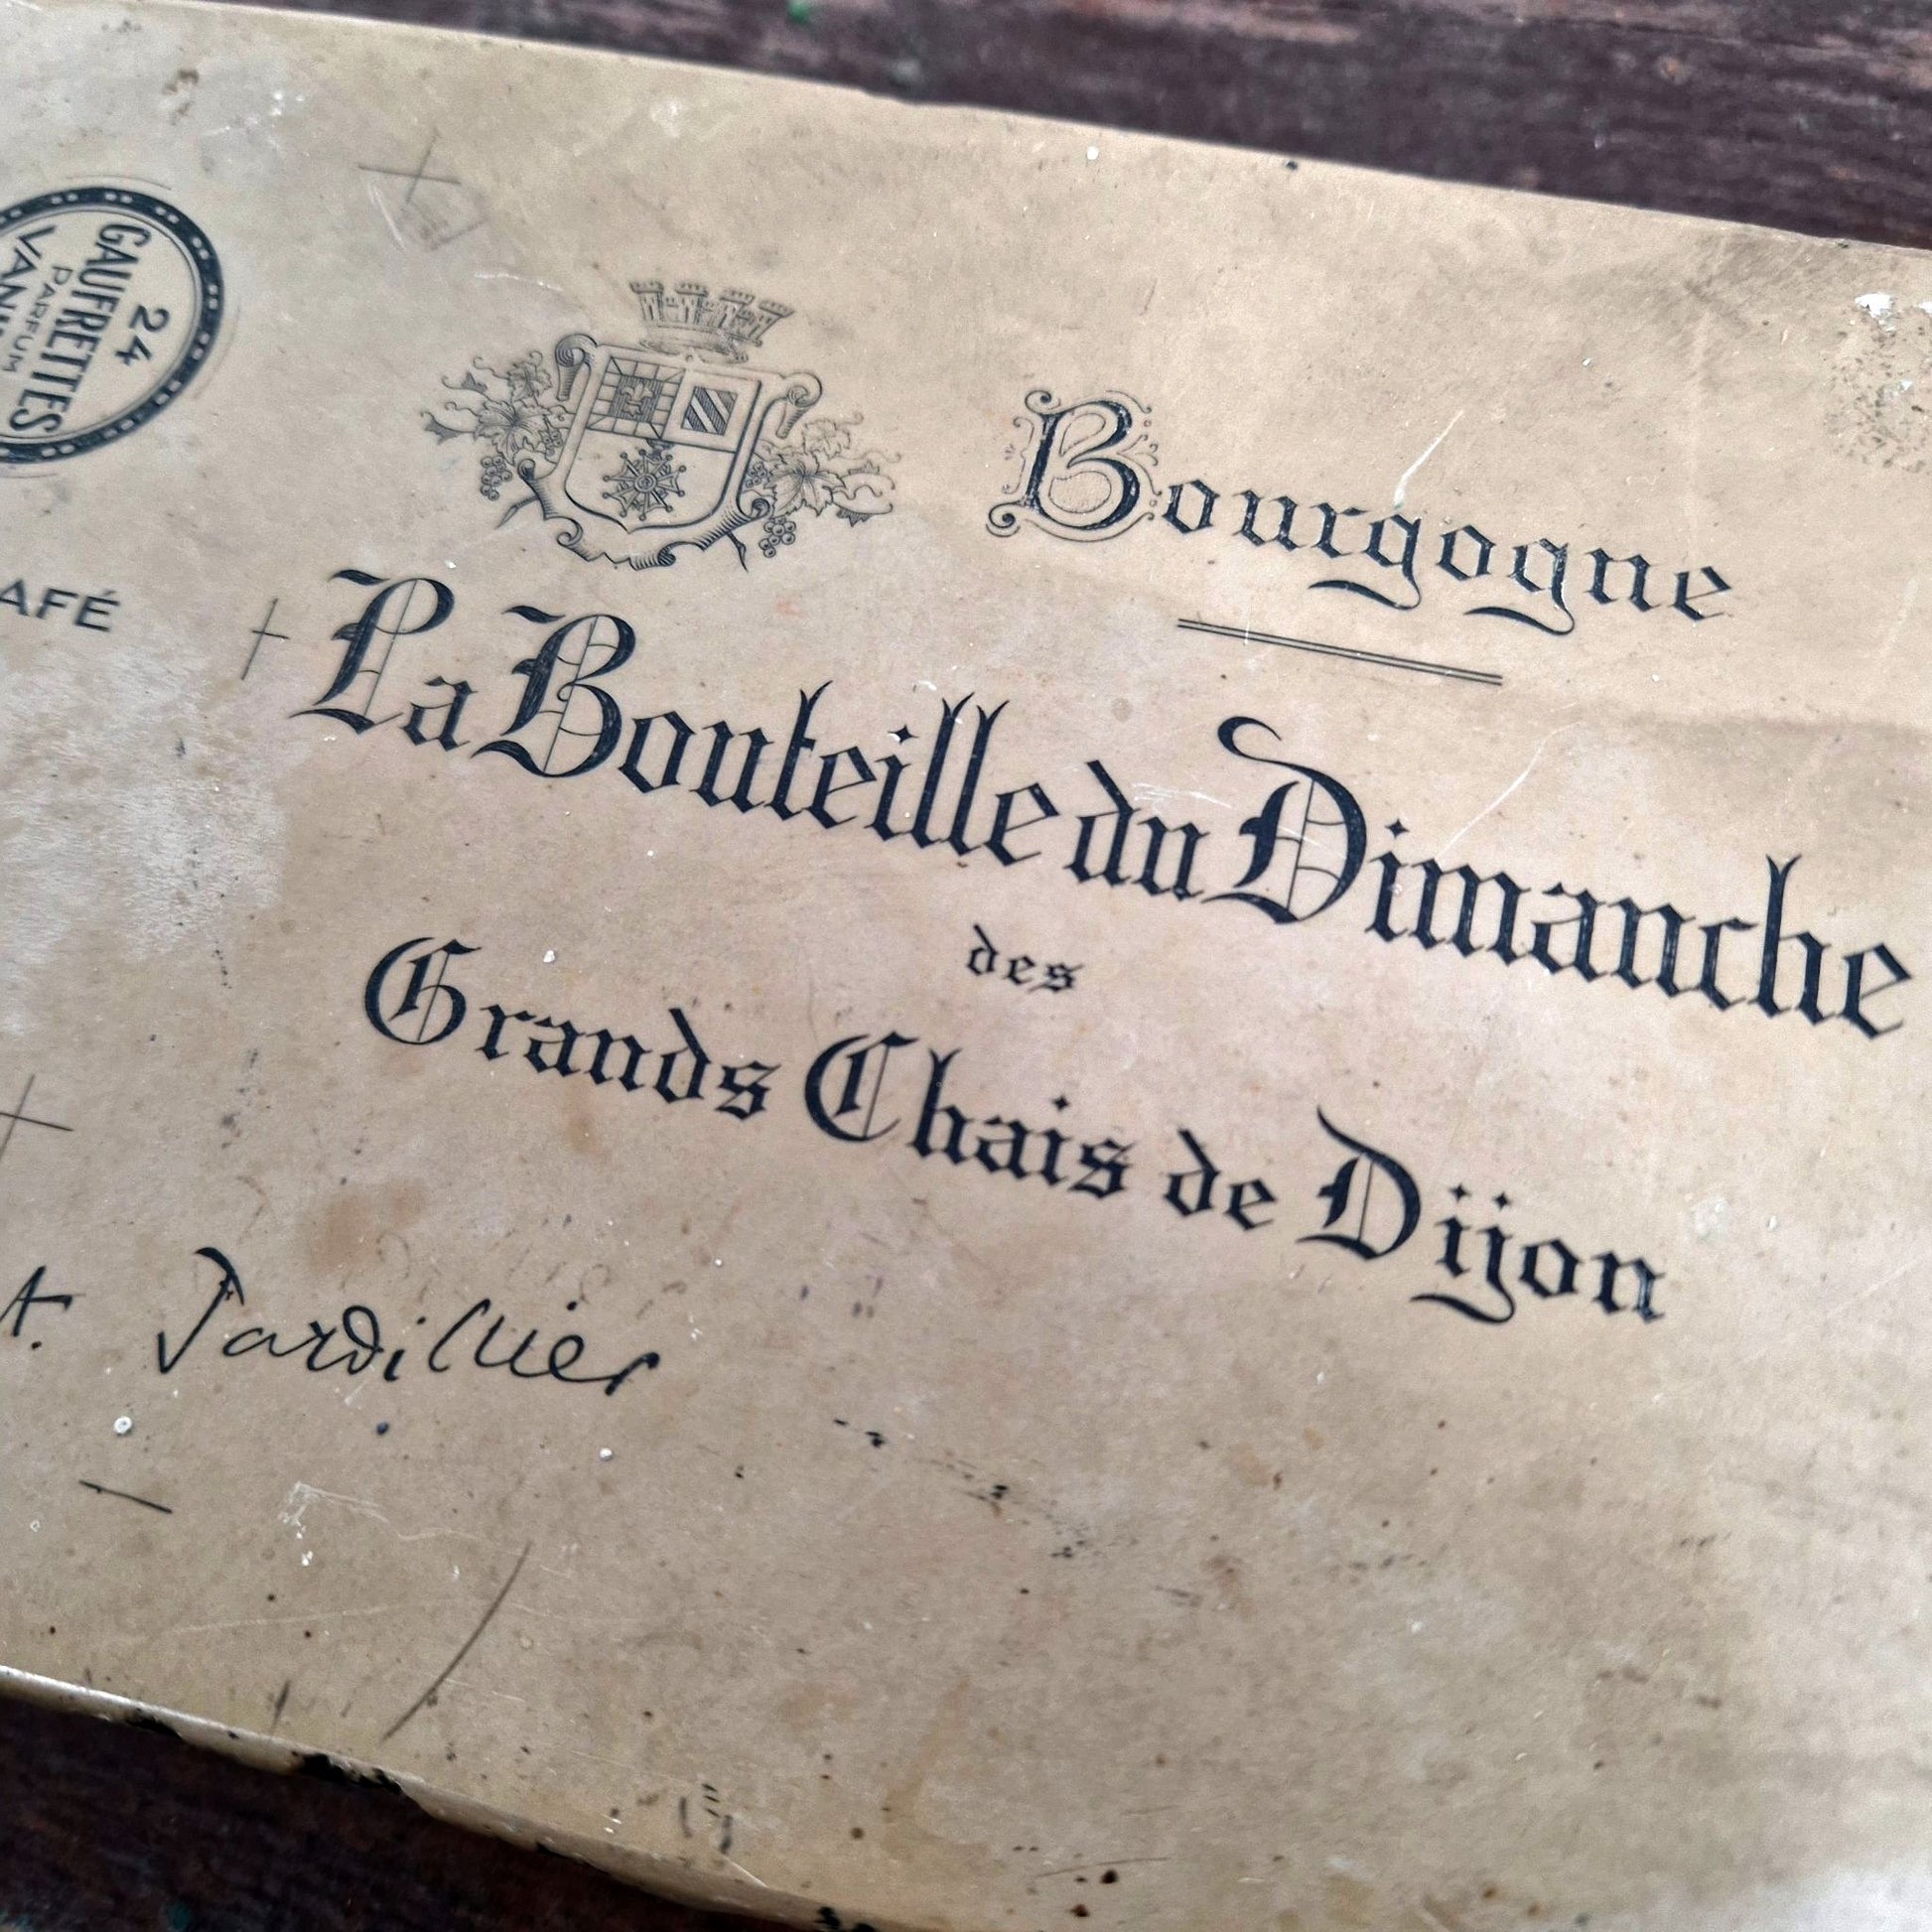 24
GAUFRETTES
PARFUM
AFÉ
Bourgogne
La Bouteille du Dimanche
des
Grands Chais de Dijon
A. Jardillier